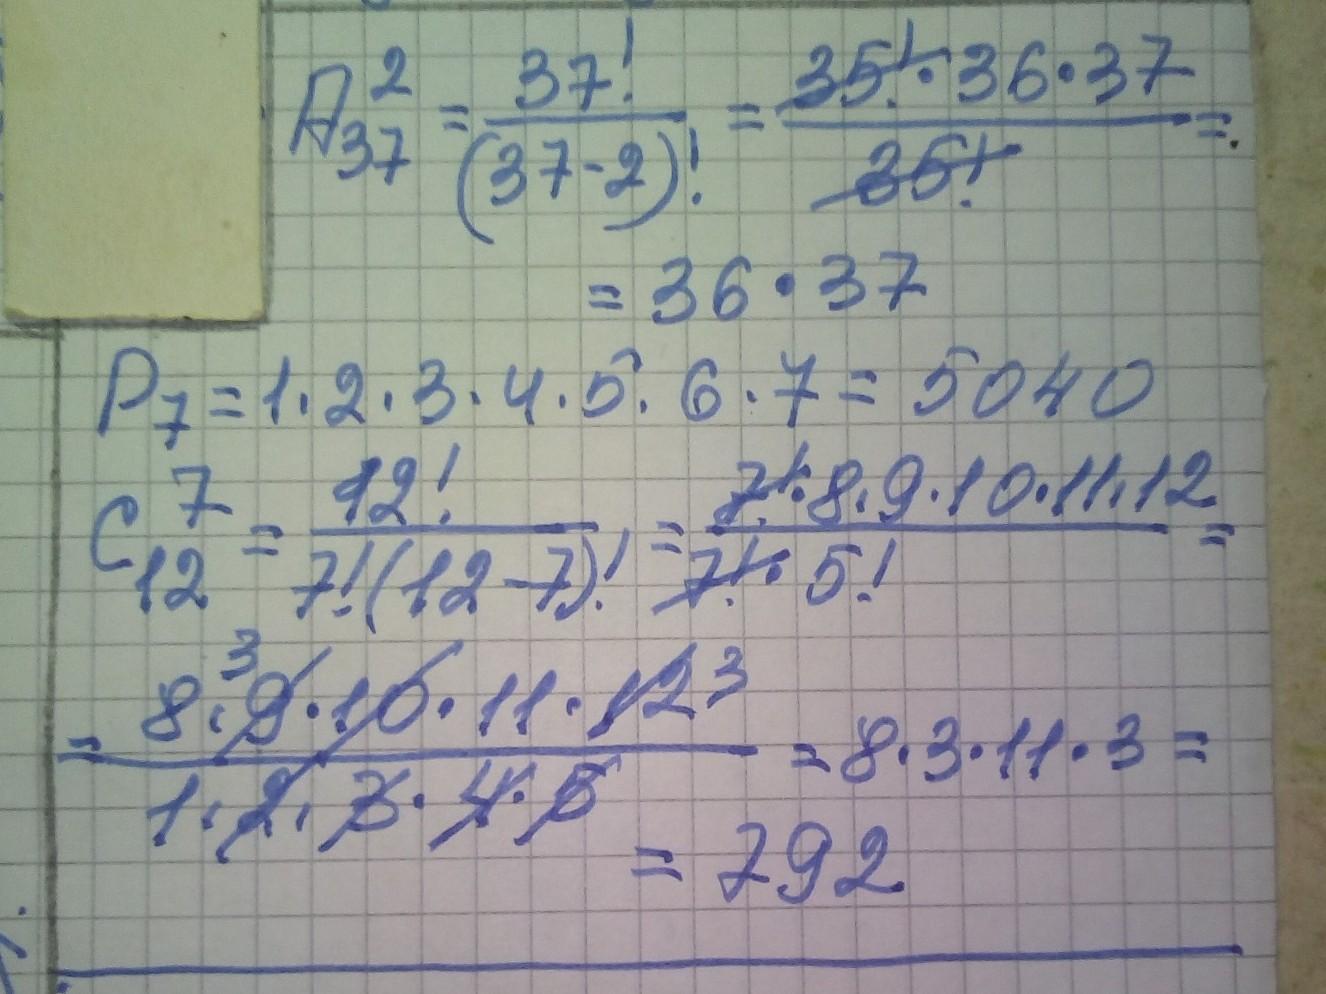 A²₃₇ = 37! / (37-2)! = 35!·36·37 / 35! =
= 36·37
P₇ = 1·2·3·4·5·6·7 = 5040
C⁷₁₂ = 12! / 7!(12-7)! = 7!·8·9·10·11·12 / 7!·5! =
= 8·9³·10·11·12³ / 1·2·3·4·5 = 8·3·11·3 =
= 792